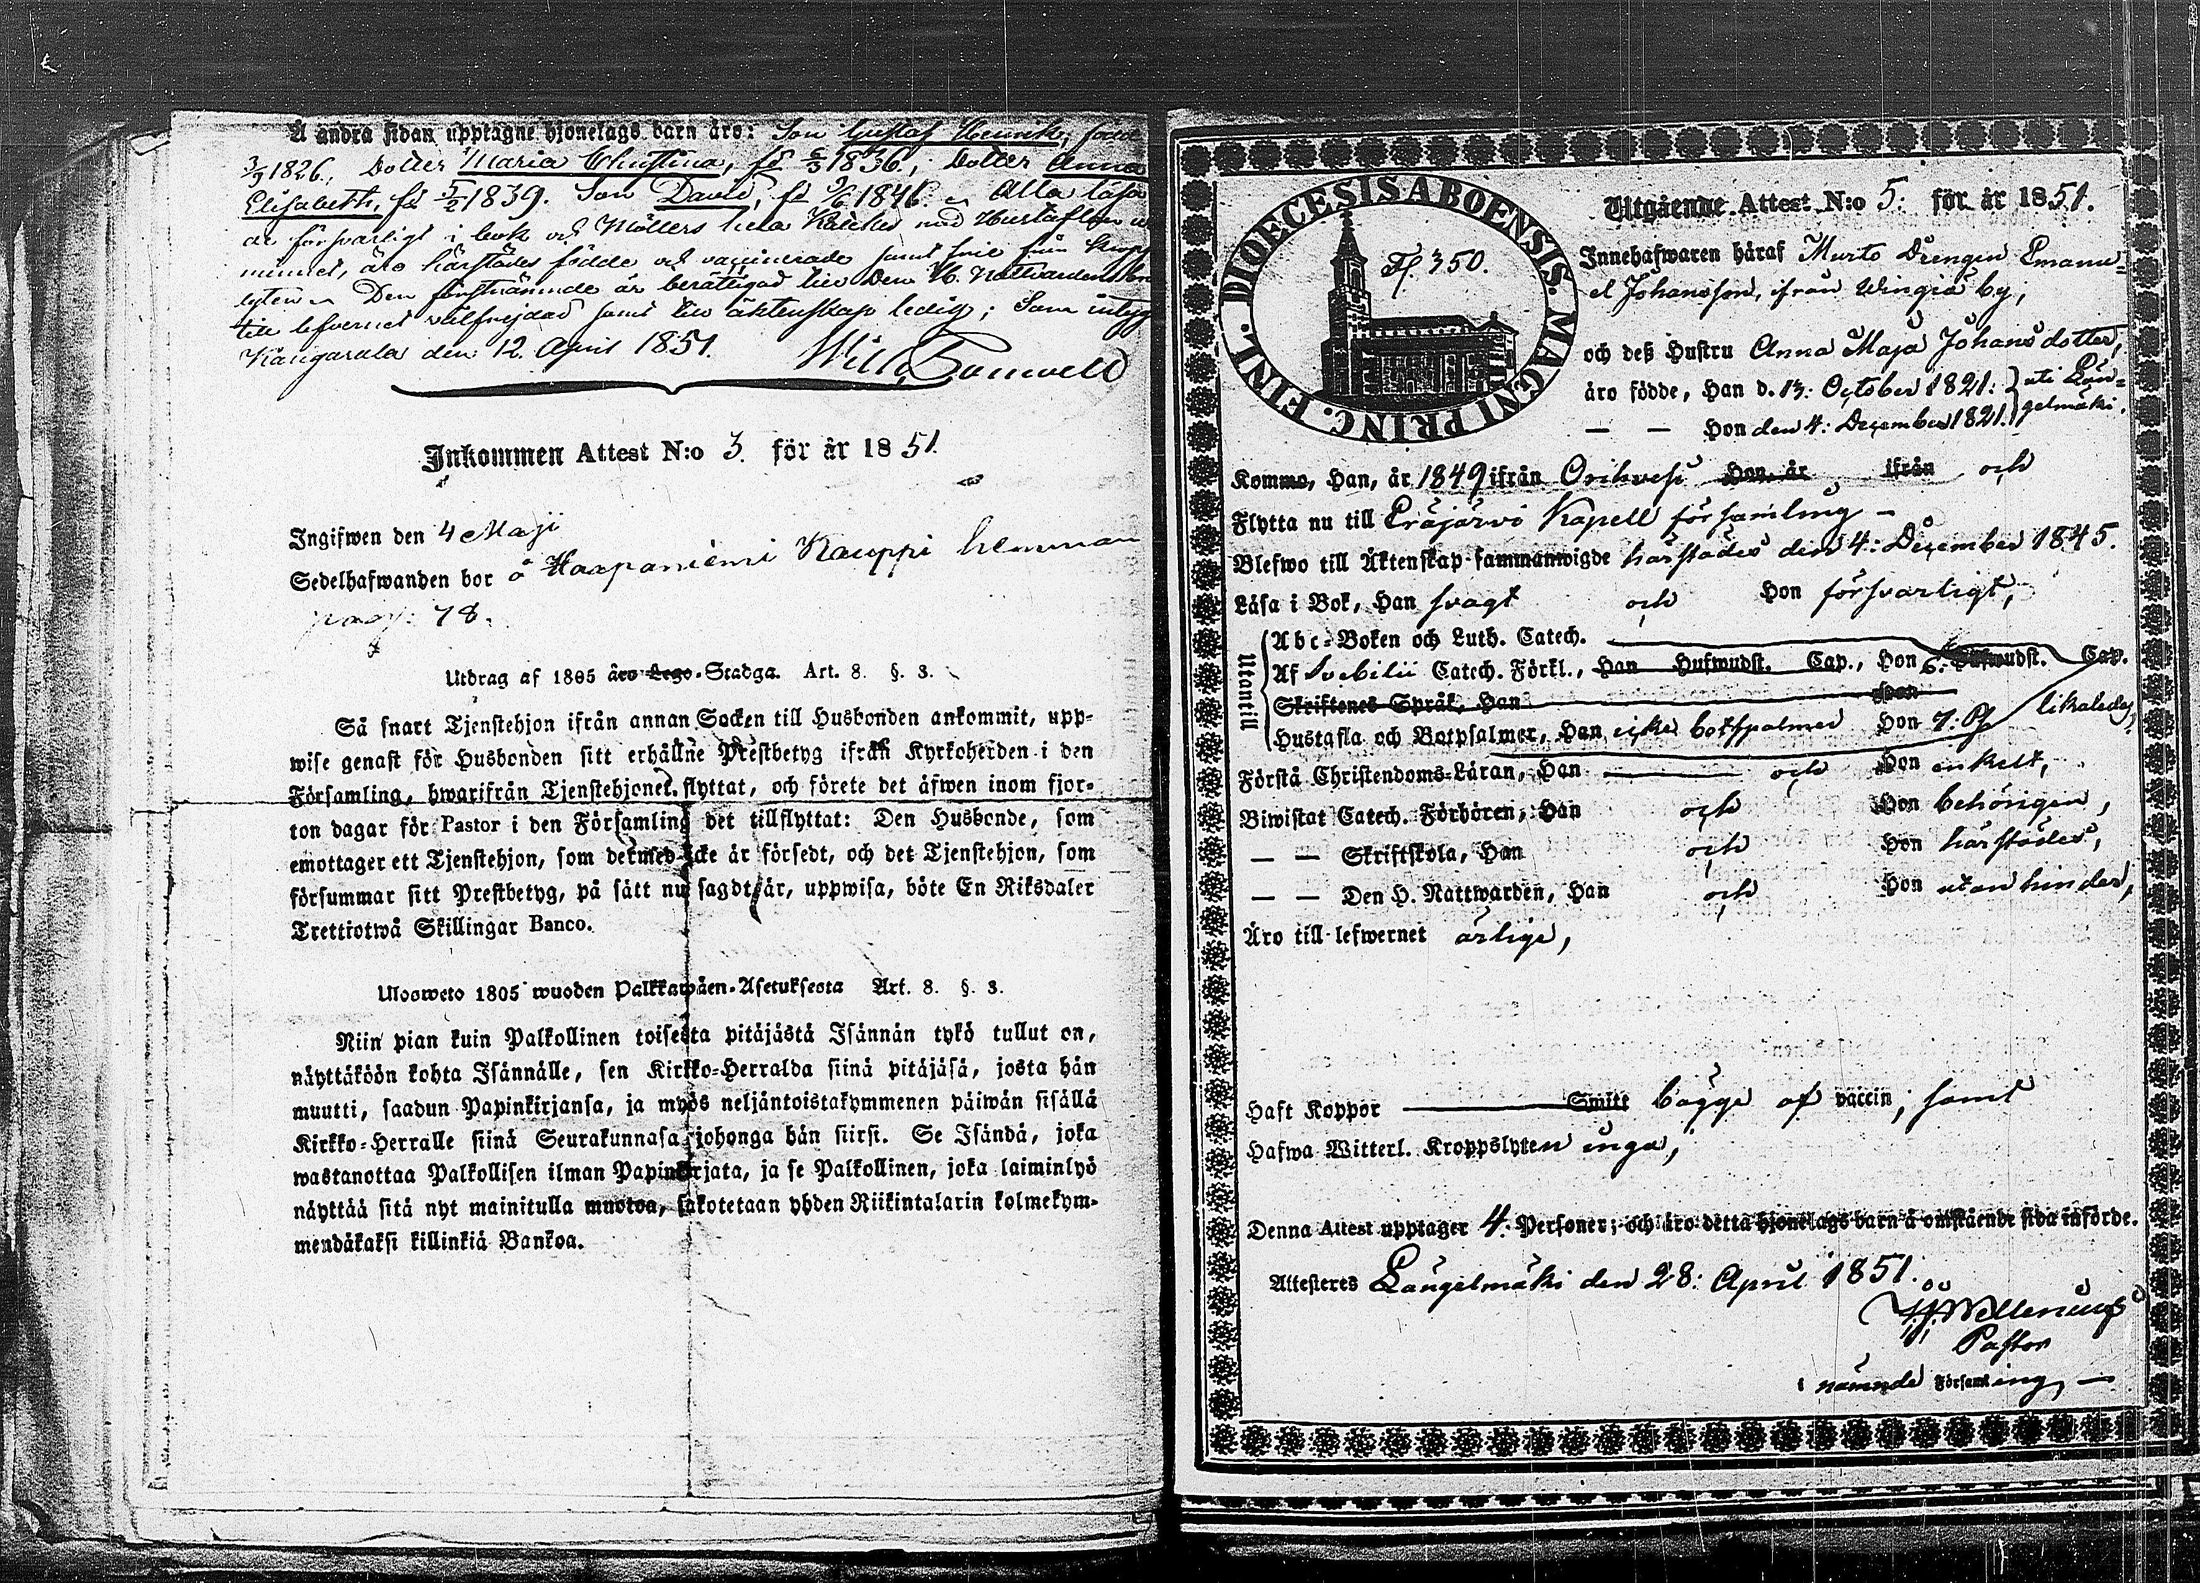 Å andra sidan upptagne hjonelags barn äro: Son Gustaf Henrik, född
3/9 1826, Dotter Maria Christina, fd 6/3 1836, Dotter Anna
Elisabeth, fd 5/2 1839. Son David, fd 9/6 1841. Alla läsa
försvarligt i bok och Möllers hela Kateches med Hustaflan
minnet, äro härstädes födde och vaccinerade samt frie från kropps
lyten. Den förstnämnde är berättigad till Den H. Nattvarden
till lefvernet välfrejdad samt till äktenskap ledig; Som intyg
Kangasala den 12. April 1851.
Inkommen Attest N:o 3. för år 1851.
Ingifwen den 4 Maji
Sedelhafwanden bor å Haapaniemi Kauppi hemman
pag: 78.
Utdrag af 1805 års Lego-Stadga. Art. 8. §. 3.
Så snart Tjenstehjon ifrån annan Socken till Husbonden ankommit, upp-
wise genast för Husbonden sitt erhållne Prestbetyg ifrån Kyrkoherden i den
Församling, hwarifrån Tjenstehjonet flyttat, och förete det äfwen inom fjor-
ton dagar för Pastor i den Församling det tillflyttat: Den Husbonde, som
emottager ett Tjenstehjon, som dermed icke är försedt, och det Tjenstehjon, som
försummar sitt Prestbetyg, på sätt nu sagdt är, uppwisa, böte En Riksdaler
Trettiotwå Skillingar Banco.
Ulosweto 1805 wuoden Palkkawäen-Asetuksesta Art. 8. §. 3.
Niin pian kuin Palkollinen toisesta pitäjästä Isännän tykö tullut on,
näyttäköön kohta Isännälle, sen Kirkko-Herralda siinä pitäjäsä, josta hän
muutti, saadun Papinkirjansa, ja myös neljäntoistakymmenen päiwän sisällä
Kirkko-Herralle siinä Seurakunnasa johonga hän siirsi. Se Isändä, joka
wastanottaa Palkollisen ilman Papinkirjata, ja se Palkollinen, joka laiminlyö
näyttää sitä nyt mainitulla muotoa, sakotetaan yhden Riikintalarin kolmekym-
mendäkaksi killinkiä Bankoa.
DIOECESIS ABOENSIS. MAGNI PRINC. FINL.
Fl. 350.
Utgående Attest N:o 5. för år 1851.
Innehafwaren häraf Murto Drengen Emanu-
el Johansson, ifrån Wingiä by,
och deß Hustru Anna Maja Johansdotter,
äro födde, Han d. 13: October 1821. uti Län-
— — Hon den 4: December 1821. gelmäki.
Kommo, Han, år 1849 ifrån Orihvesi Hon, år ifrån och
Flytta nu till Eräjärvi Kapell församling —
Blefwo till Äktenskap sammanwigde härstädes den 4: December 1845.
Läsa i Bok, Han svagt och Hon försvarligt,
Utantill
Abc-Boken och Luth. Catech.
Af Svebilii Catech. Förkl., Han Hufwudst. Cap., Hon 6. Hufwudst. Cap.
Skriftenes Språk, Han Hon
Hustafla och Botpsalmer, Han icke botpsalmer Hon likaledes,
Förstå Christendoms-Läran, Han och Hon enkelt,
Biwistat Catech. Förhören, Han och Hon behörigen,
— — Skriftskola, Han och Hon härstädes,
— — Den H. Nattwarden, Han och Hon utan hinder,
Äro till lefwernet ärlige,
Haft Koppor Smitt bägge af vaccin, samt
Hafwa Witterl. Kroppslyten inga,
Denna Attest upptager 4. Personer; och äro detta hjonelags barn å omstående sida införde.
Attesteres Längelmäki den 28: April 1851.
Pastor
i nämnde Församling, —